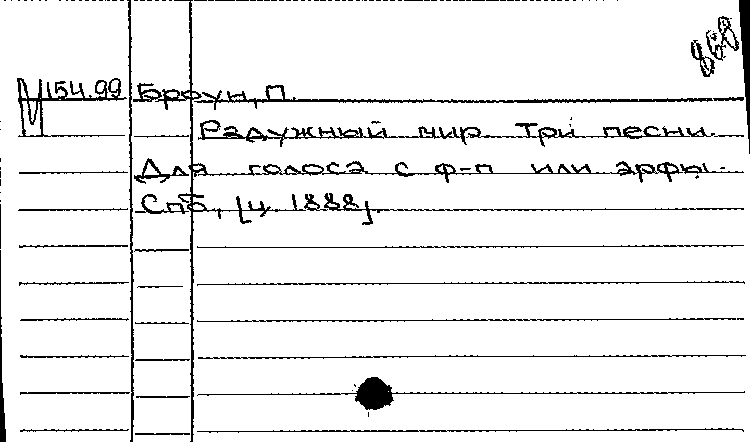 868
М154.99 Броун, П.
Радужный мир. Три песни.
Для голоса с ф-п или арфы.
Спб, [ц. 1888].